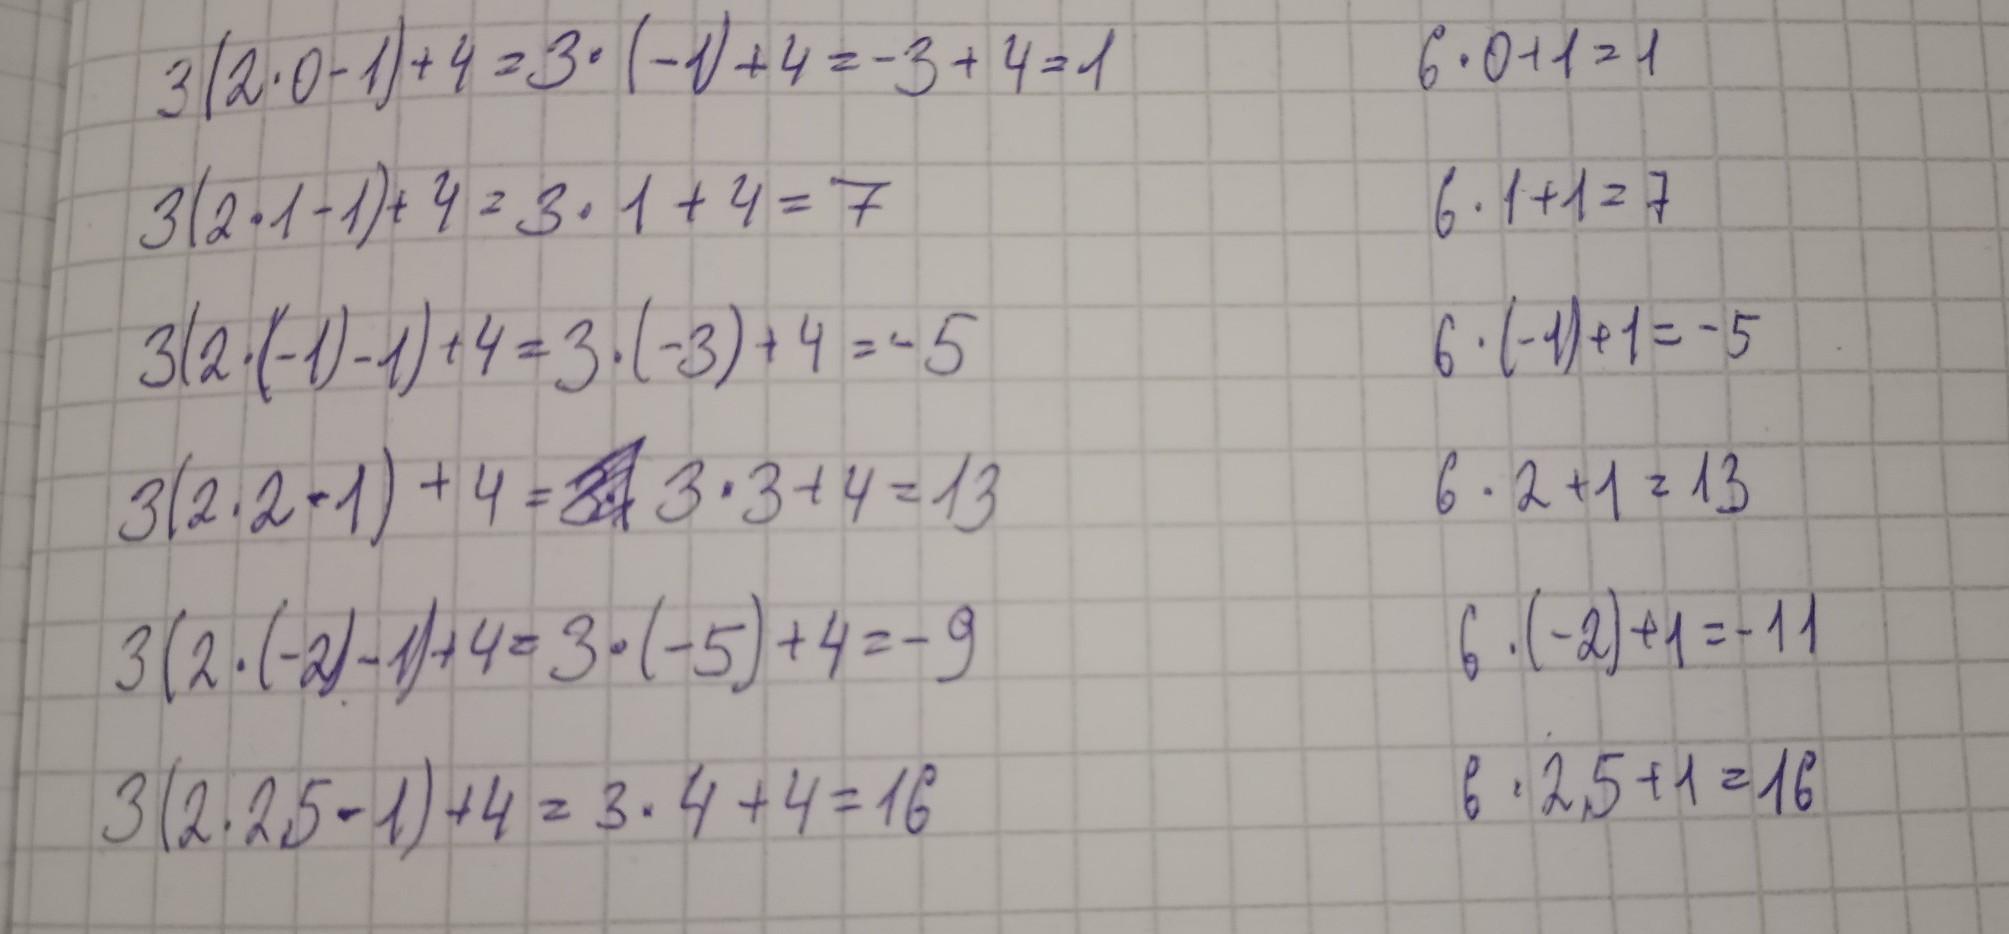 3(2·0-1)+4=3·(-1)+4=-3+4=1 6·0+1=1
3(2·1-1)+4=3·1+4=7 6·1+1=7
3(2·(-1)-1)+4=3·(-3)+4=-5 6·(-1)+1=-5
3(2·2-1)+4=3·3+4=13 6·2+1=13
3(2·(-2)-1)+4=3·(-5)+4=-9 6·(-2)+1=-11
3(2·2,5-1)+4=3·4+4=16 6·2,5+1=16